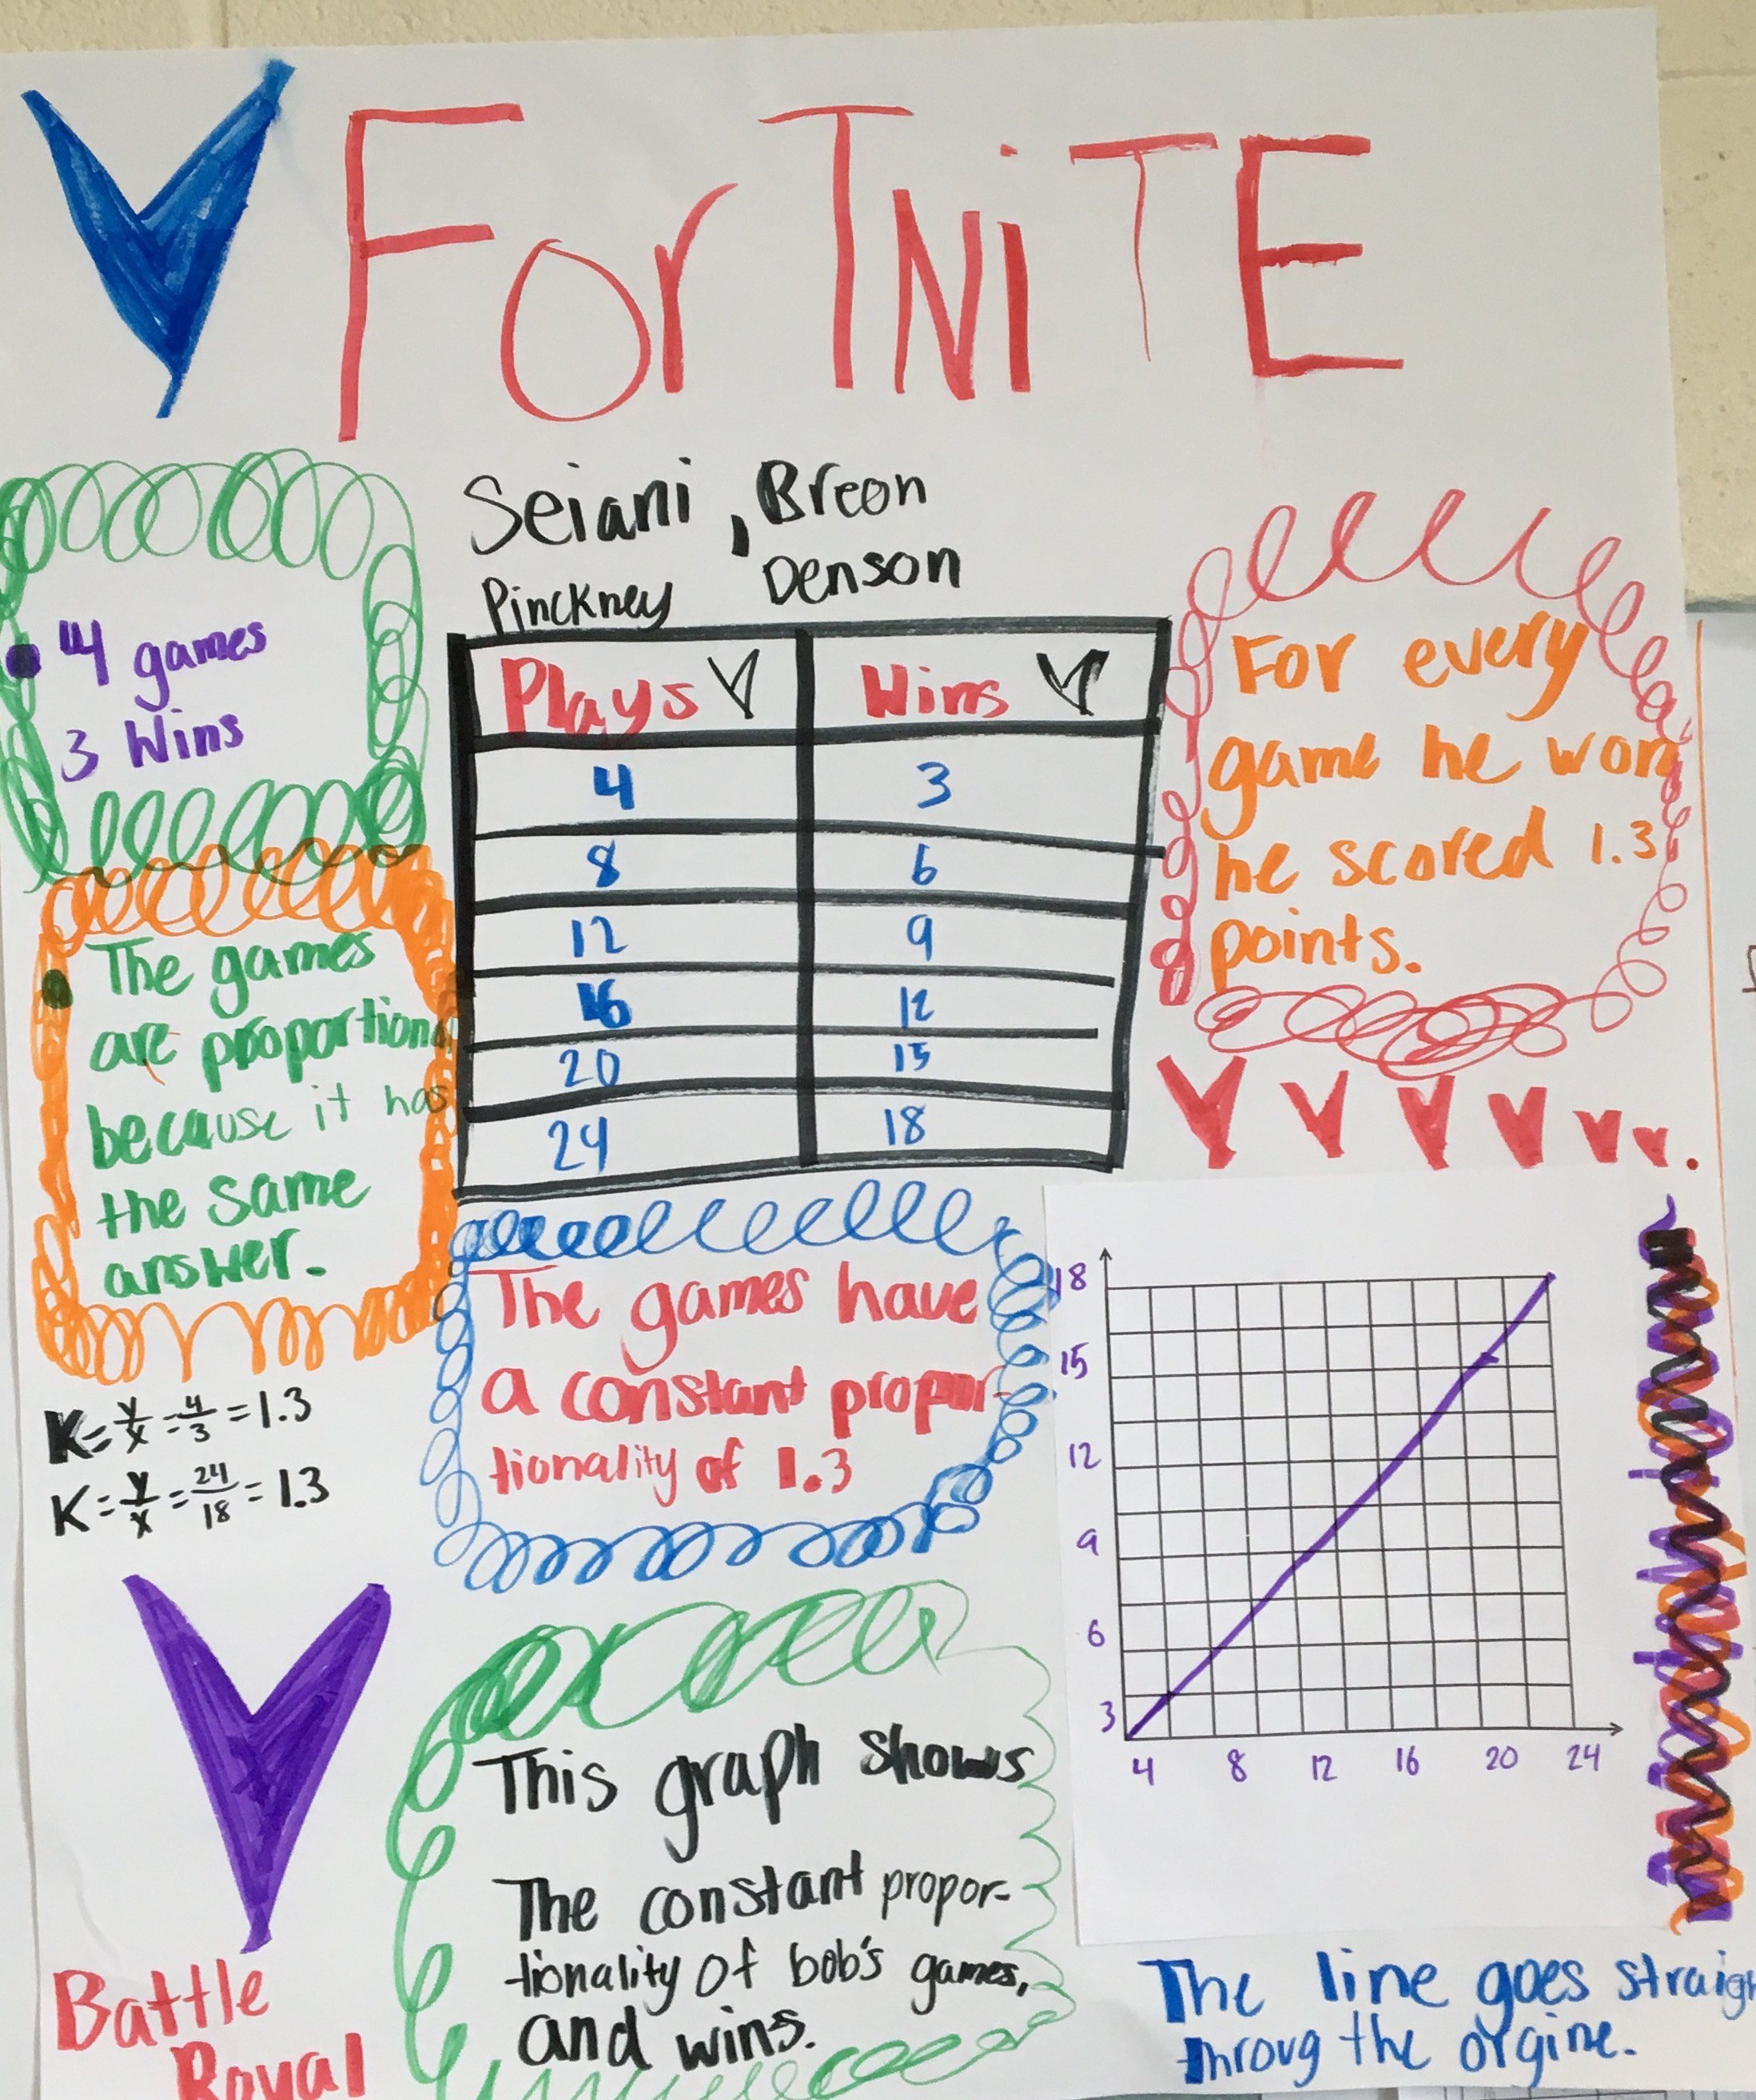 ForTNiTE
Seiani, Breon
Pinckney Denson
4 games
3 Wins
The games
are proportion
because it has
the same
answer.
K=y/x=4/3=1.3
K=y/x=24/18=1.3
Plays Wins
4 3
8 6
12 9
16 12
20 15
24 18
For every
game he won
he scored 1.3
points.
The games have
a constant propor-
tionality of 1.3
18
15
12
9
6
3
4 8 12 16 20 24
This graph shows
The constant propor-
tionality of bob's games,
and wins.
Battle
Royal
The line goes straigh
throug the orgine.